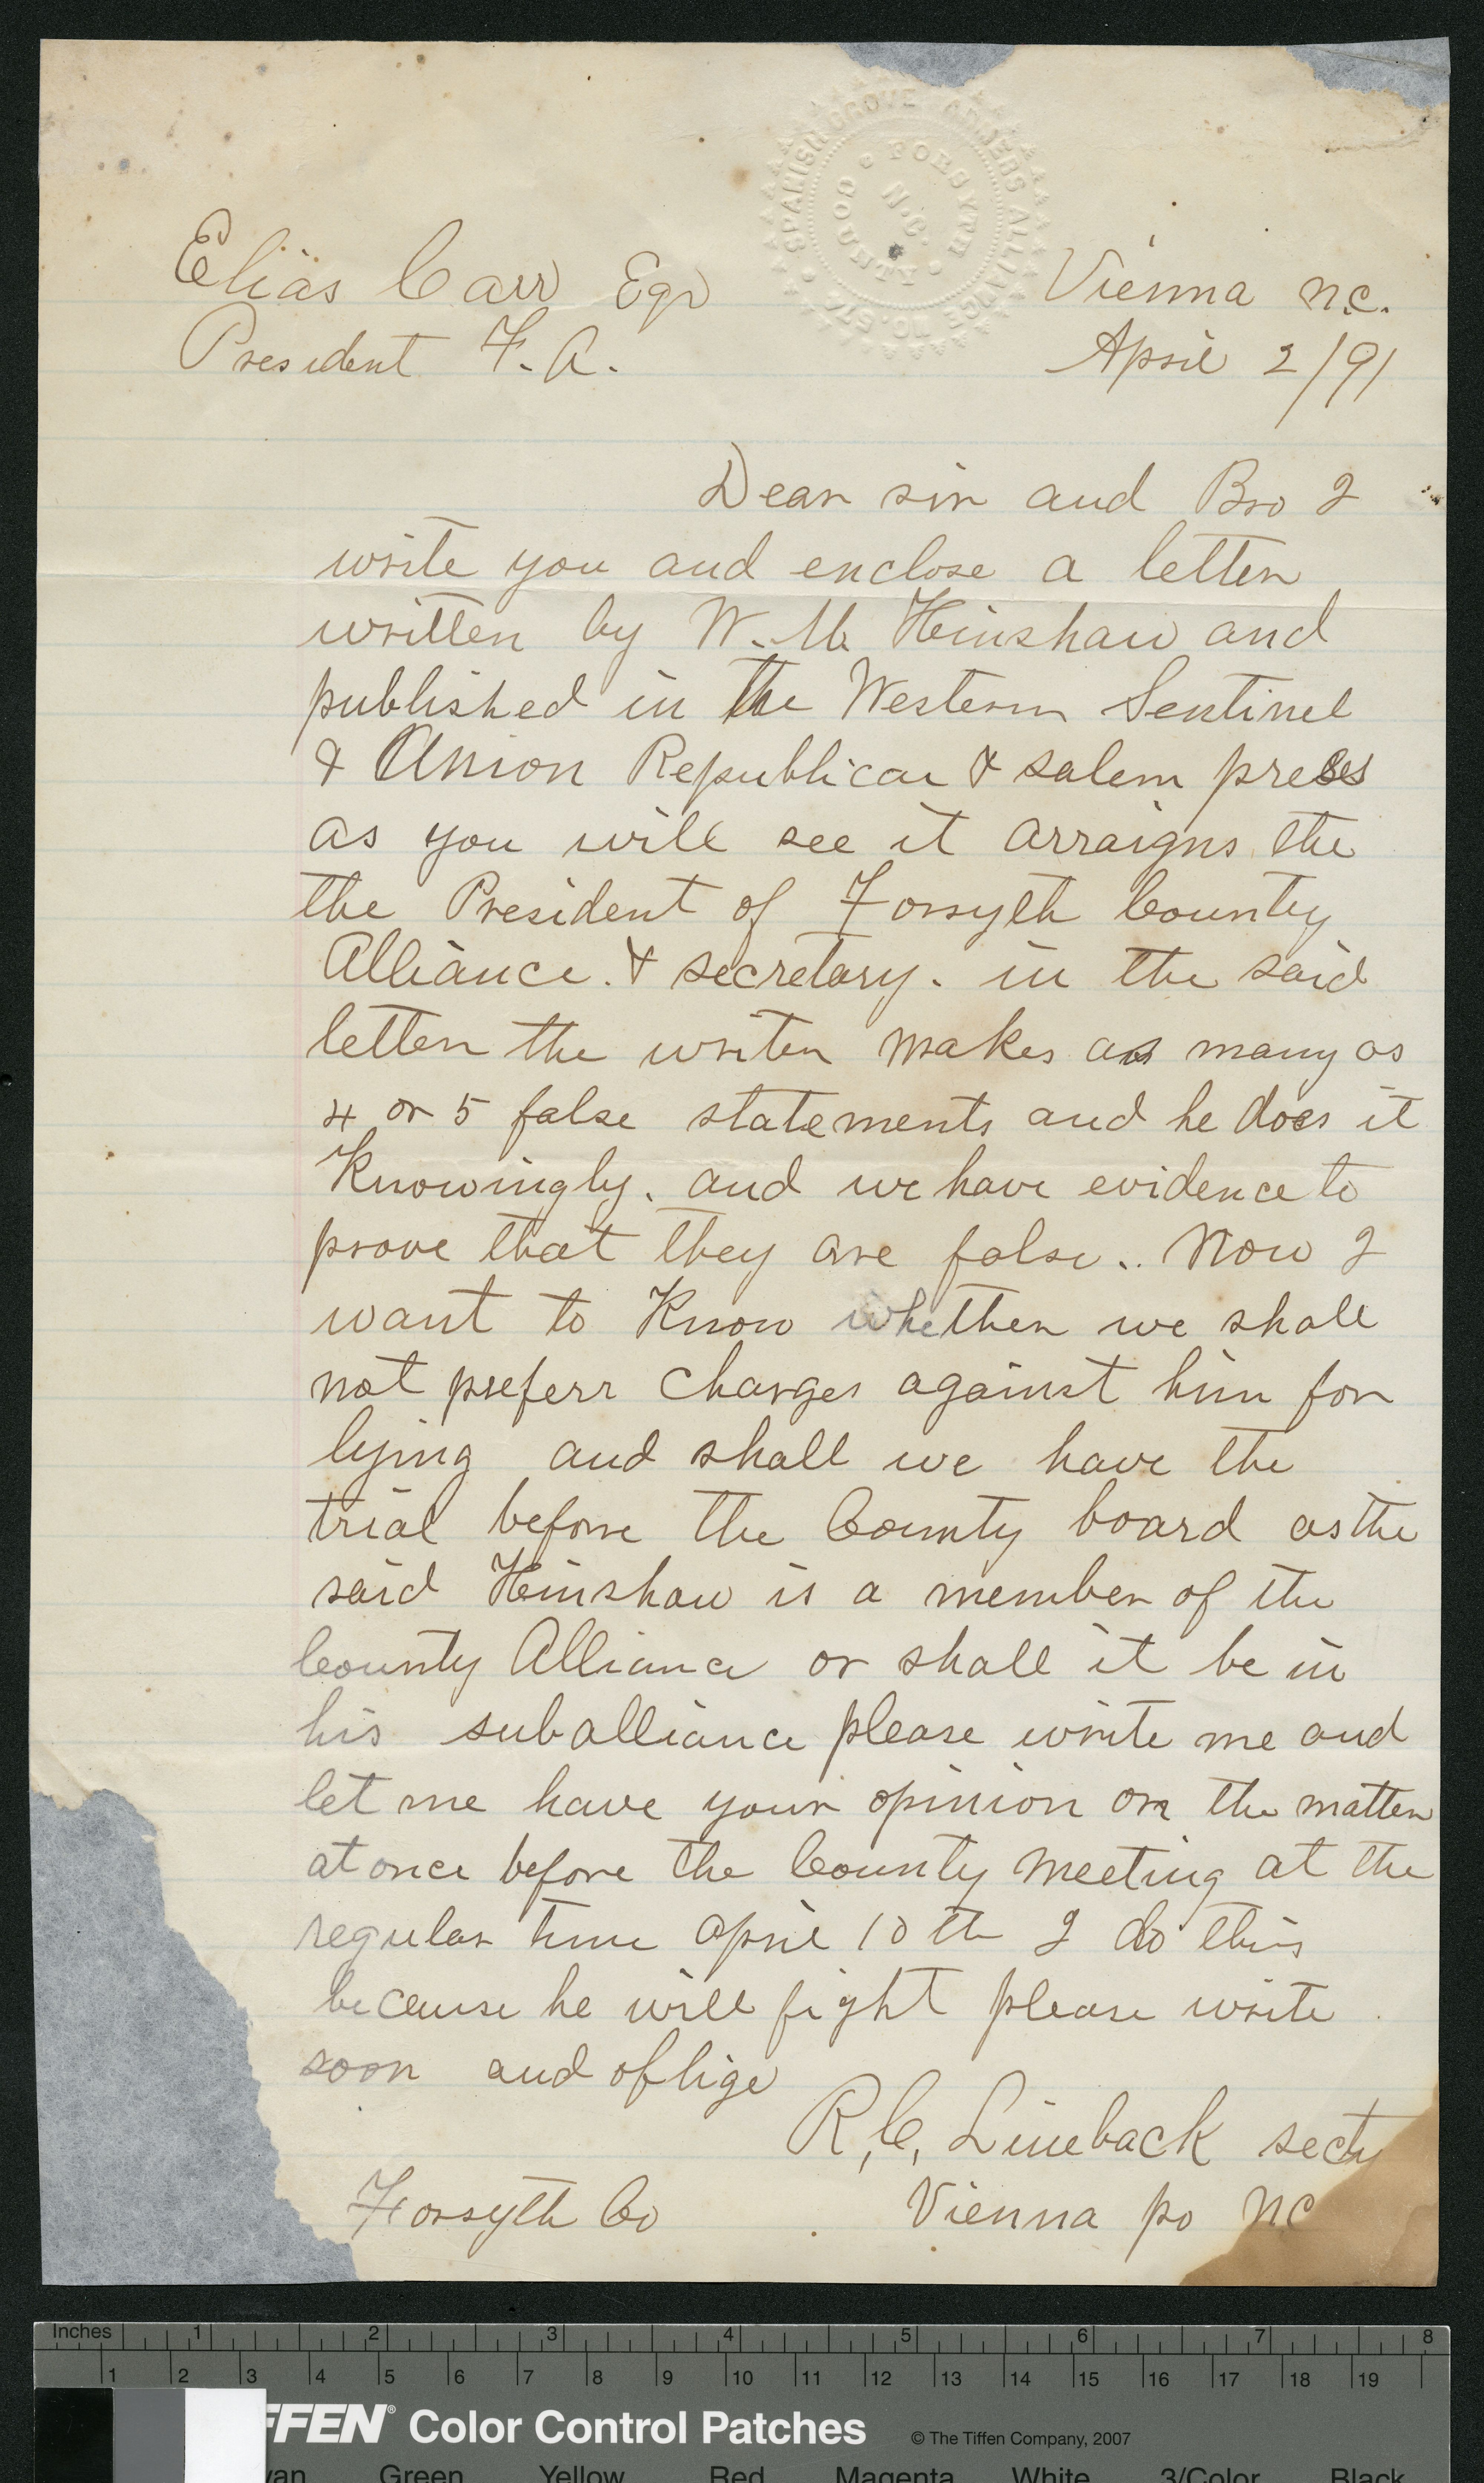 SPANISH GROVE FARMERS ALLIANCE NO. 574
FORSYTH COUNTY
N.C.
Elias Carr Eqr
Vienna n.c.
President F. A.
April 2/91
Dear sir and Bro I
write you and enclose a letter
written by W. M. Hinshaw and
published in the Western Sentinel
& Union Republican & salem press
as you will see it arraigns the
the President of Forsyth County
Alliance. & secretary. in the said
letter the writer makes as many as
4 or 5 false statements and he does it
Knowingly. and we have evidence to
prove that they are false.. Now I
want to Know whether we shall
not preferr charges against him for
lying and shall we have the
trial before the County board as the
said Hinshaw is a member of the
County Alliance or shall it be in
his suballiance please write me and
let me have your opinion on the matter
at once before the County meeting at the
regular time april 10th I do this
because he will fight please write
soon and oblige
R, C, Lineback secty
Forsyth Co
Vienna po NC
Inches 1 2 3 4 5 6 7 8
1 2 3 4 5 6 7 8 9 10 11 12 13 14 15 16 17 18 19
FFEN® Color Control Patches © The Tiffen Company, 2007
yan Green Yellow Red Magenta White 3/Color Black